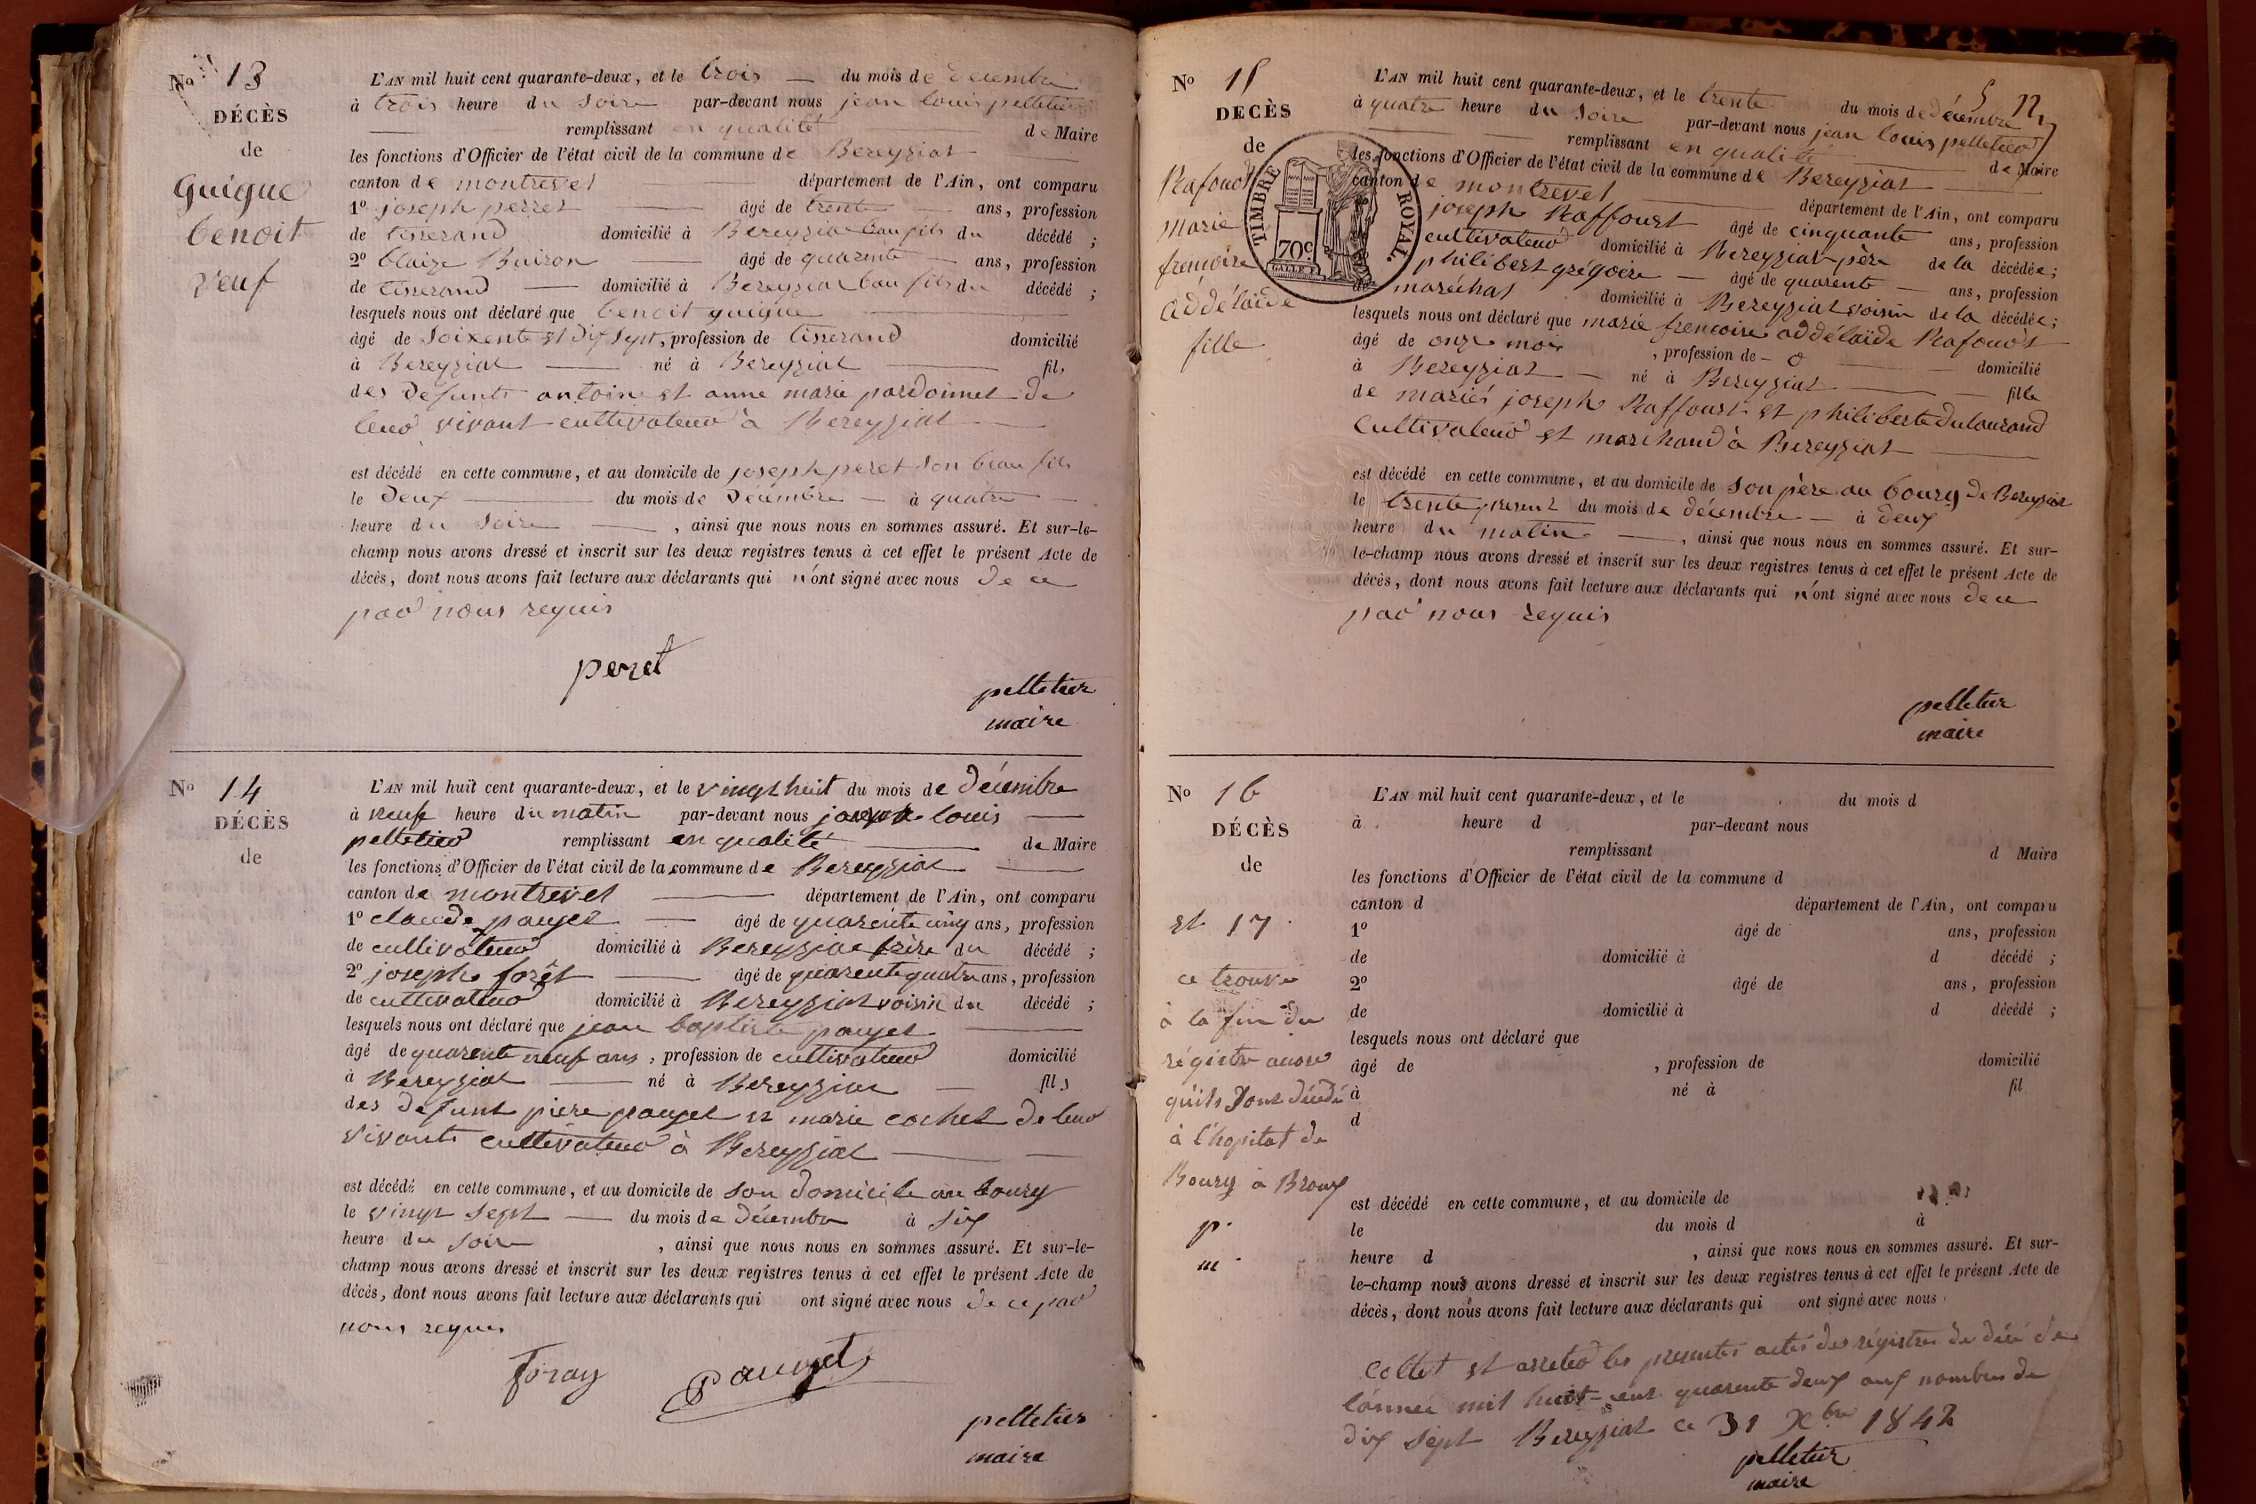 No 13
DÉCÈS
de
Guigue
benoit
veuf
L'AN mil huit cent quarante-deux, et le trois du mois de decembre
à trois heure du soire par-devant nous jean louis pelletier
remplissant en qualité de Maire
les fonctions d'Officier de l'état civil de la commune de Bereyziat
canton de montrevel département de l'Ain, ont comparu
1o joseph perret âgé de trente ans, profession
de tisserand domicilié à Bereyziat beau fils du décédé ;
2o blaize Buiron âgé de quarente ans, profession
de tisserand domicilié à Bereyziat beau fils du décédé ;
lesquels nous ont déclaré que benoit guigue
âgé de soixente et dix sept, profession de tisserand domicilié
à Bereyziat né à Bereyziat fils
des defunts antoine et anne marie pardonnet de
leur vivant cultivateur à Bereyziat
est décédé en cette commune, et au domicile de joseph peret son beau fils
le deux du mois de décembre à quatre
heure du soire , ainsi que nous nous en sommes assuré. Et sur-le-
champ nous avons dressé et inscrit sur les deux registres tenus à cet effet le présent Acte de
décès, dont nous avons fait lecture aux déclarants qui n'ont signé avec nous de ce
par nous requis
peret
pelletier
maire
No 14
DÉCÈS
de
L'AN mil huit cent quarante-deux, et le vingt huit du mois de décembre
à neuf heure du matin par-devant nous louis
pelletier remplissant en qualité de Maire
les fonctions d'Officier de l'état civil de la commune de Bereyziat
canton de montrevel département de l'Ain, ont comparu
1o claude pauget âgé de quarente cinq ans, profession
de cultivateur domicilié à Bereyziat frère du décédé ;
2o joseph forêt âgé de quarente quatre ans, profession
de cultivateur domicilié à Bereyziat voisin du décédé ;
lesquels nous ont déclaré que jean baptiste pauget
âgé de quarente neuf ans, profession de cultivateur domicilié
à Bereyziat né à Bereyziat fils
des defunt piere pauget et marie cochet de leur
vivants cultivateur à Bereyziat
est décédé en cette commune, et au domicile de son domicile au bourg
le vingt sept du mois de décembre à six
heure du soire , ainsi que nous nous en sommes assuré. Et sur-le-
champ nous avons dressé et inscrit sur les deux registres tenus à cet effet le présent Acte de
décès, dont nous avons fait lecture aux déclarants qui ont signé avec nous de ce par
nous requis
foray pauget
pelletier
maire
No 15
DECÈS
de
Rafourt
marie
frencoise
addélaïde
fille
TIMBRE ROYAL.
70c
L'AN mil huit cent quarante-deux, et le trente du mois de décembre
à quatre heure du soire par-devant nous jean louis pelletier
remplissant en qualité de Maire
les fonctions d'Officier de l'état civil de la commune de Bereyziat
canton de montrevel département de l'Ain, ont comparu
joseph Raffourt âgé de cinquante ans, profession
cultivateur domicilié à Bereyziat père de la décédée ;
philibert grégoire âgé de quarente ans, profession
de maréchal domicilié à Bereyziat voisin de la décédée ;
lesquels nous ont déclaré que marie frencoise addélaïde Rafourt
âgé de onze mois , profession de - 0 domicilié
à Bereyziat né à Bereyziat fille
de mariés joseph Raffourt et philiberte Dulaurand
cultivateur et marchand à Bereyziat
est décédé en cette commune, et au domicile de son père au bourg de Bereyziat
le trente present du mois de décembre à deux
heure du matin , ainsi que nous nous en sommes assuré. Et sur-
le-champ nous avons dressé et inscrit sur les deux registres tenus à cet effet le présent Acte de
décès, dont nous avons fait lecture aux déclarants qui n'ont signé avec nous de ce
par nous requis
pelletier
maire
No 16
DÉCÈS
de
et 17
ce trouve
à la fin du
régistre
qu'ils sont décédé
à l'hopital de
Bourg à Broux
p.
m.
L'AN mil huit cent quarante-deux, et le du mois d
à heure d par-devant nous
remplissant d Maire
les fonctions d'Officier de l'état civil de la commune d
canton d département de l'Ain, ont comparu
1o âgé de ans, profession
de domicilié à d décédé ;
2o âgé de ans, profession
de domicilié à d décédé ;
lesquels nous ont déclaré que
âgé de , profession de domicilié
à né à fil
d
est décédé en cette commune, et au domicile de
le du mois d à
heure d , ainsi que nous nous en sommes assuré. Et sur-
le-champ nous avons dressé et inscrit sur les deux registres tenus à cet effet le présent Acte de
décès, dont nous avons fait lecture aux déclarants qui ont signé avec nous
et arreter les presentes actes des régistres de décè de
l'année mil huit cent quarente deux aux nombre de
dix sept Bereyziat ce 31 Xbre 1842
pelletier
maire